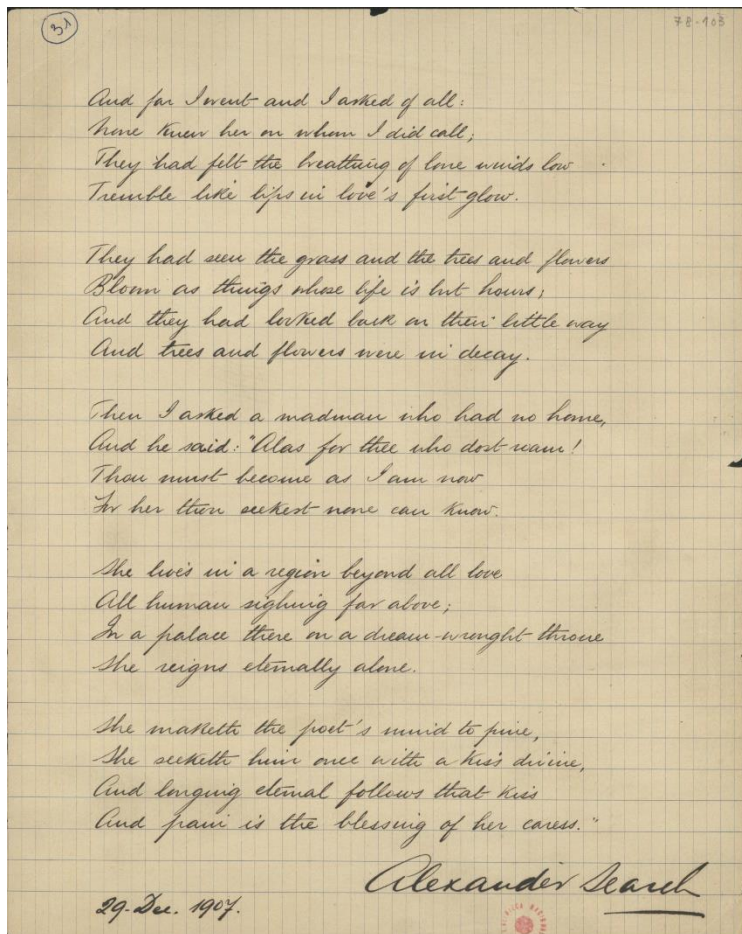 31
78-103
And far I went and I asked of all:
None knew her on whom I did call;
They had felt the breathing of lone winds low
Tremble like lips in love's first glow.
They had seen the grass and the trees and flowers
Bloom as things whose life is but hours;
And they had looked back on their little way
And trees and flowers were in decay.
Then I asked a madman who had no home,
And he said: "Alas for thee who dost roam!
Thou must become as I am now
For her thou seekest none can know.
She lives in a region beyond all love
All human sighing far above;
In a palace there on a dream-wrought throne
She reigns eternally alone.
She maketh the poet's mind to pine,
She seeketh him once with a kiss divine,
And longing eternal follows that kiss
And pain is the blessing of her caress."
Alexander Search
29-Dec. 1907.